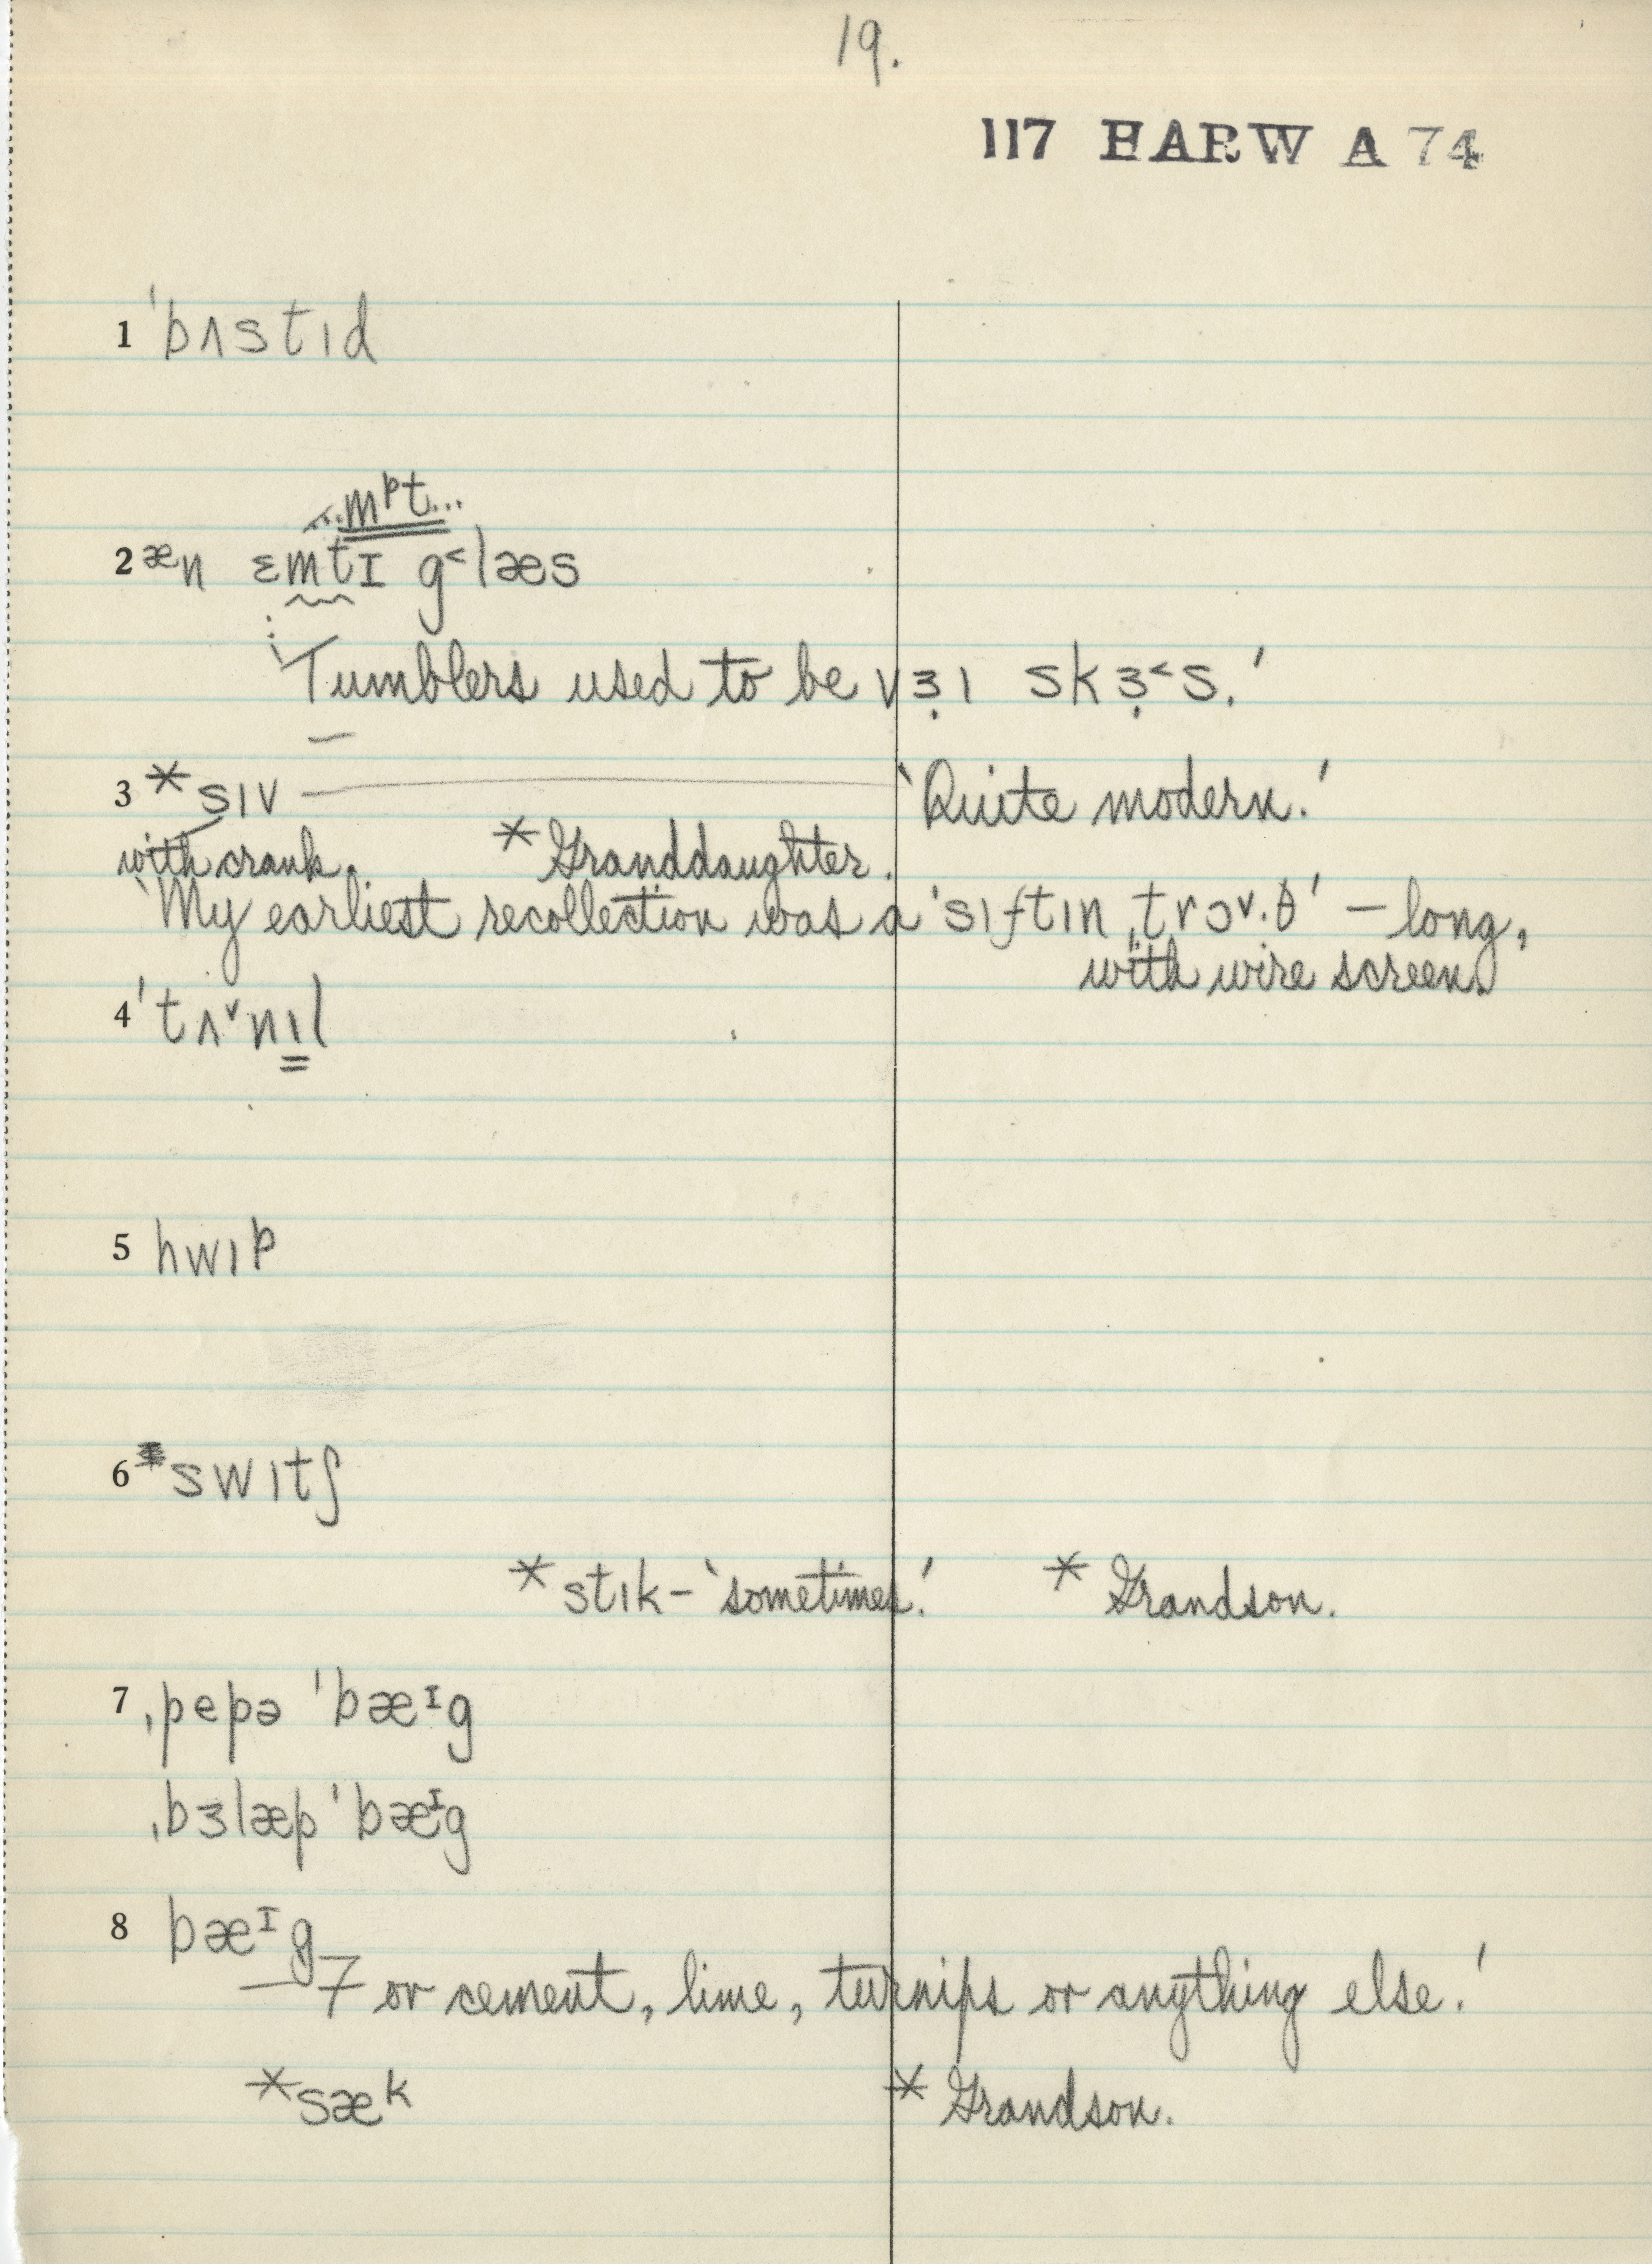 19.
117 HARW A 74
1 ˈbʌstɪd
...mᵖt...
2 ᵆn ɛmtɪ g˂læs
‘Tumblers used to be vɜ̣ɪ skɜ̣˂s.’
3 *sɪv — ‘Quite modern.’
with crank. * Granddaughter.
‘My earliest recollection was a ˈsɪftɪn ˌtrɔ˅·θ’ – long,
with wire screen.
4 ˈtʌ˅nɪl
5 hwɪᵖ
6 *swɪtʃ
*stɪk – ‘sometimes.’ * Grandson.
7 ˌpepə ˈbæᶦg
ˌbɜlæp ˈbæᶦg
8 bæᶦg
— or cement, lime, turnips or anything else.’
*sæᵏ * Grandson.